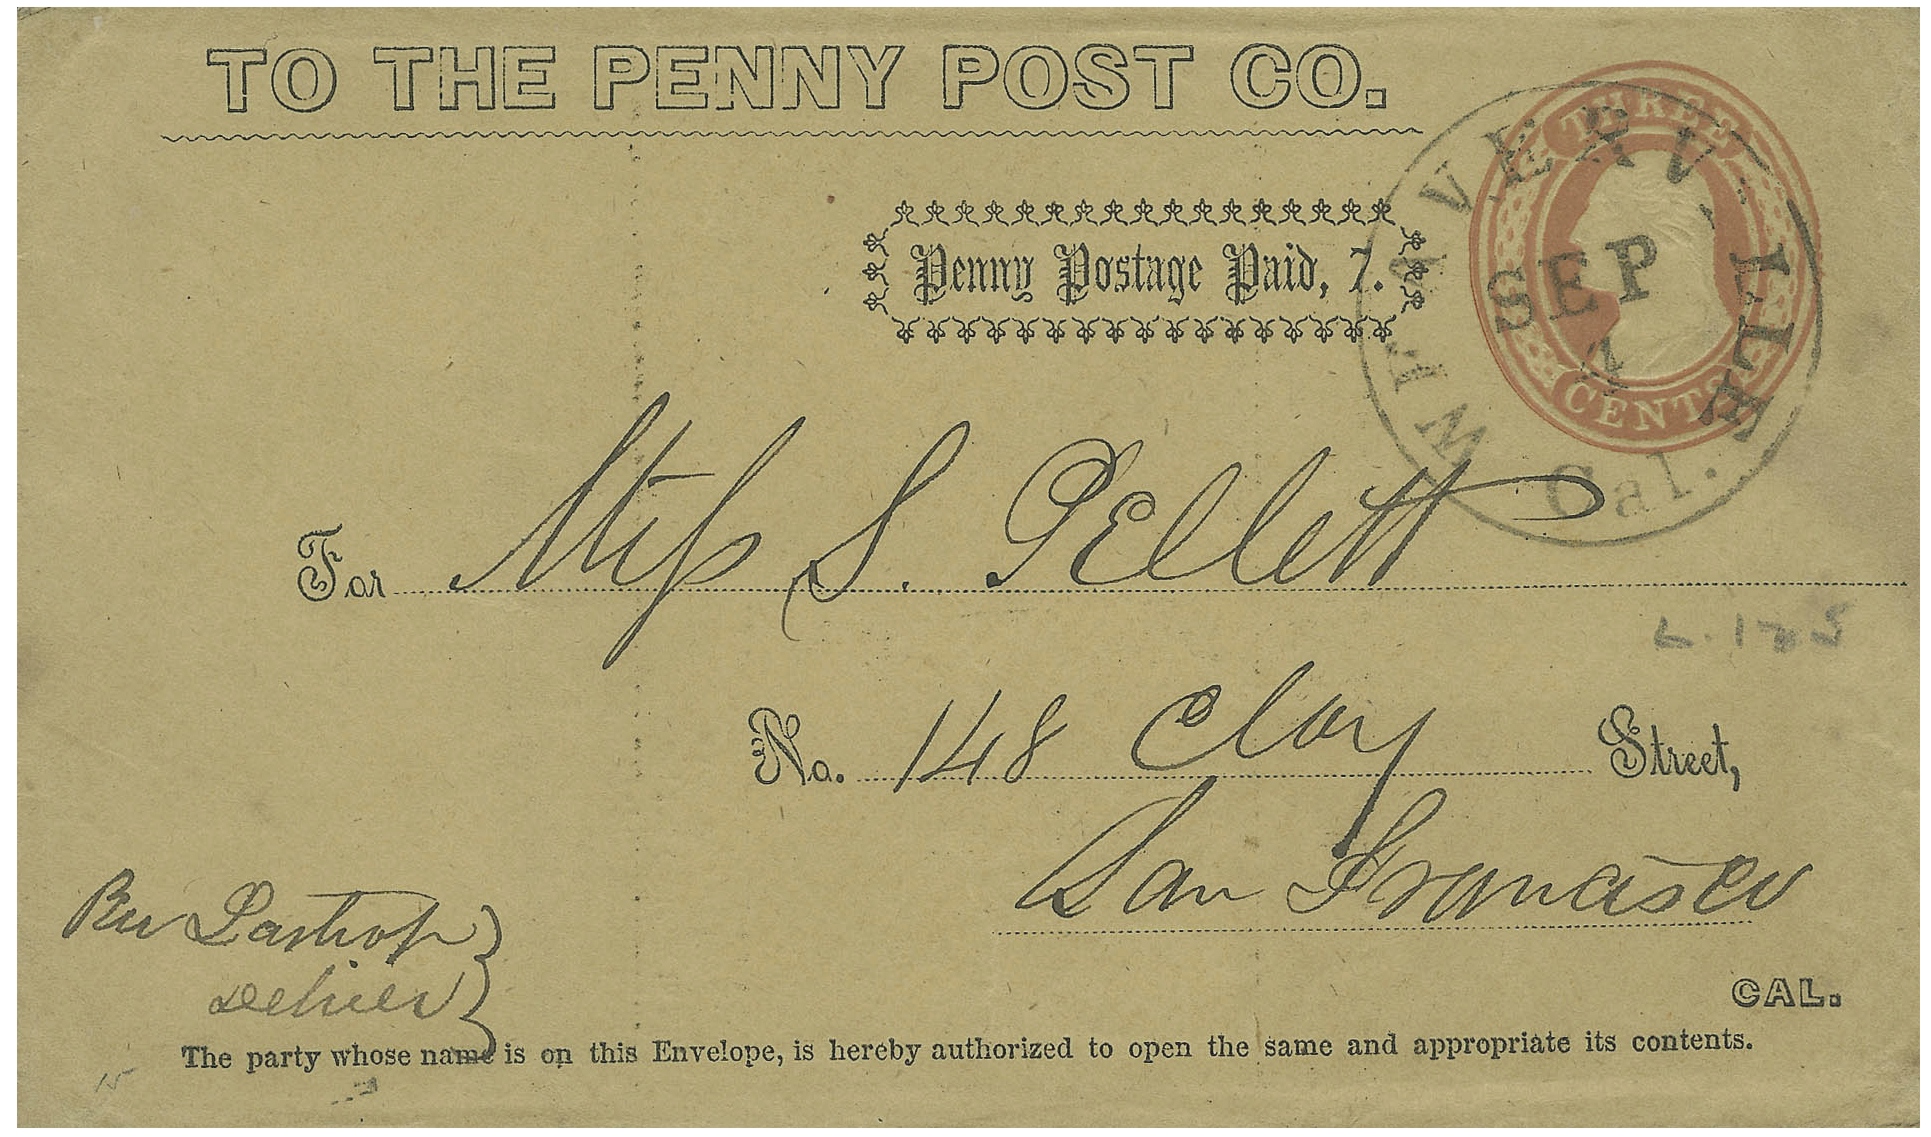 TO THE PENNY POST CO.
THREE
CENTS
WEAVERVILLE
SEP
4
Cal.
Penny Postage Paid, 7.
For Miss S. Pellett
No. 148 Clay Street,
San Francisco
deliver
CAL.
The party whose name is on this Envelope, is hereby authorized to open the same and appropriate its contents.